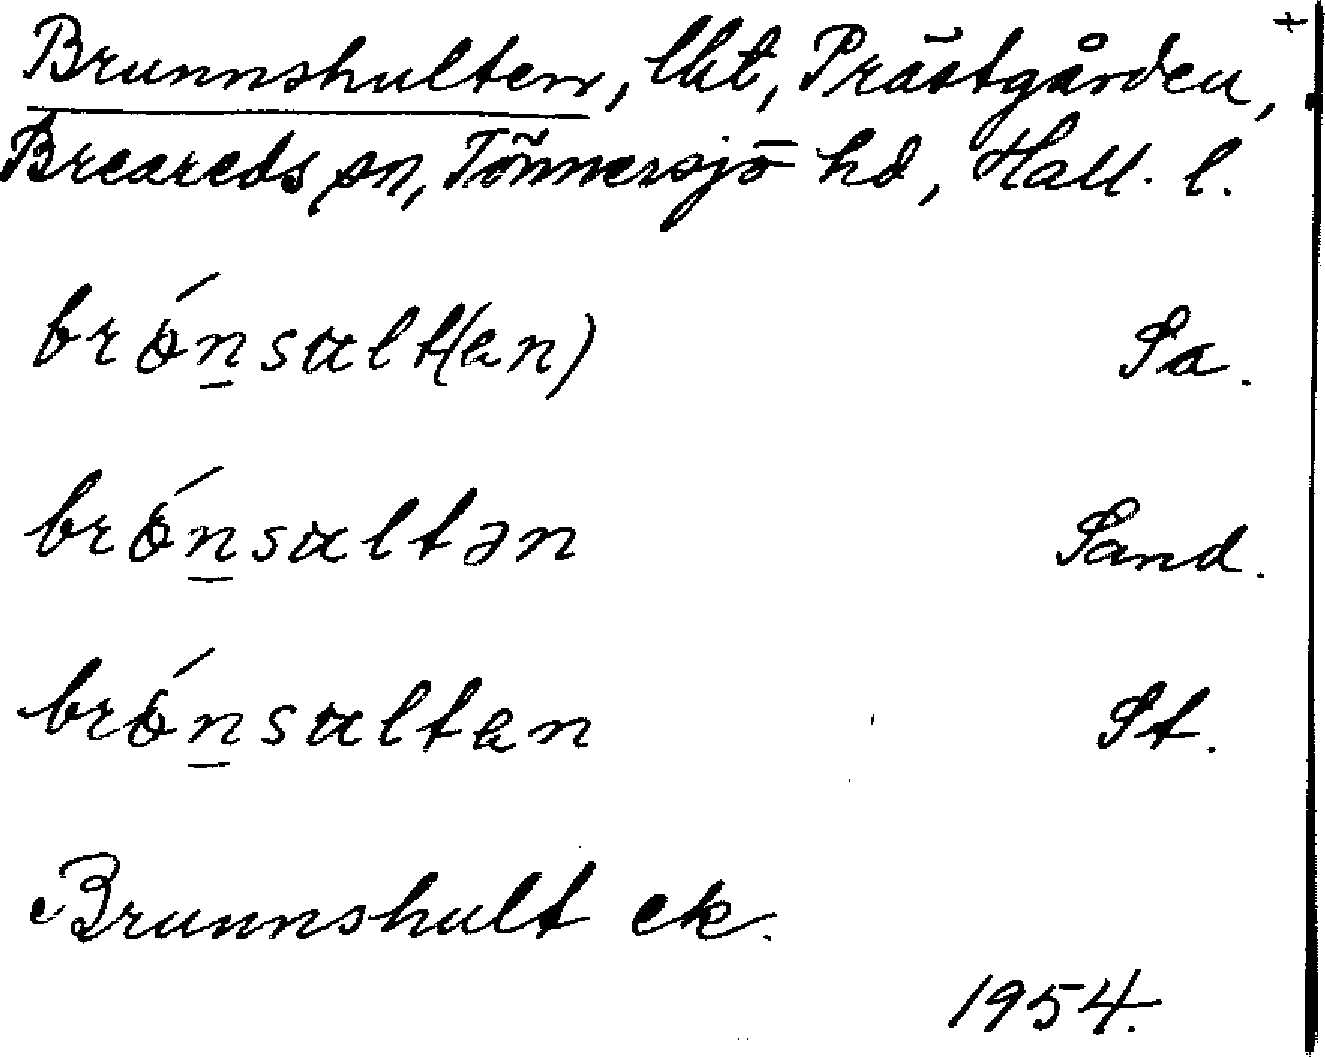 +
Brunnshulten, lht, Prästgården,
Breareds sn, Tönnersjö hd, Hall. l.
brǿn̲sɯlt(ɐn) Sa.
brǿn̲sɯltən Sand.
brǿn̲sɯltɐn St.
Brunnshult ek.
1954.